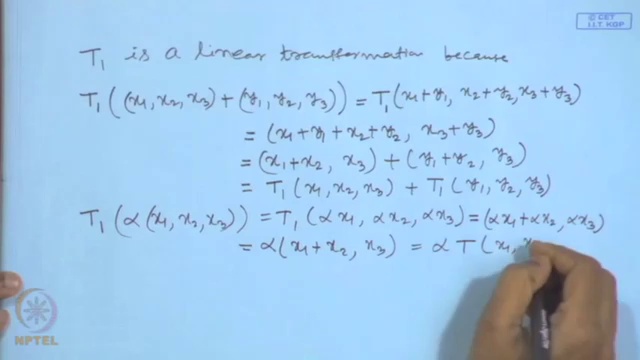 © CET
I.I.T. KGP
T₁ is a linear transformation because
T₁((x₁, x₂, x₃) + (y₁, y₂, y₃)) = T₁(x₁+y₁, x₂+y₂, x₃+y₃)
= (x₁+y₁+x₂+y₂, x₃+y₃)
= (x₁+x₂, x₃) + (y₁+y₂, y₃)
= T₁(x₁, x₂, x₃) + T₁(y₁, y₂, y₃)
T₁(α(x₁, x₂, x₃)) = T₁(αx₁, αx₂, αx₃) = (αx₁+αx₂, αx₃)
= α(x₁+x₂, x₃) = αT(x₁,
NPTEL